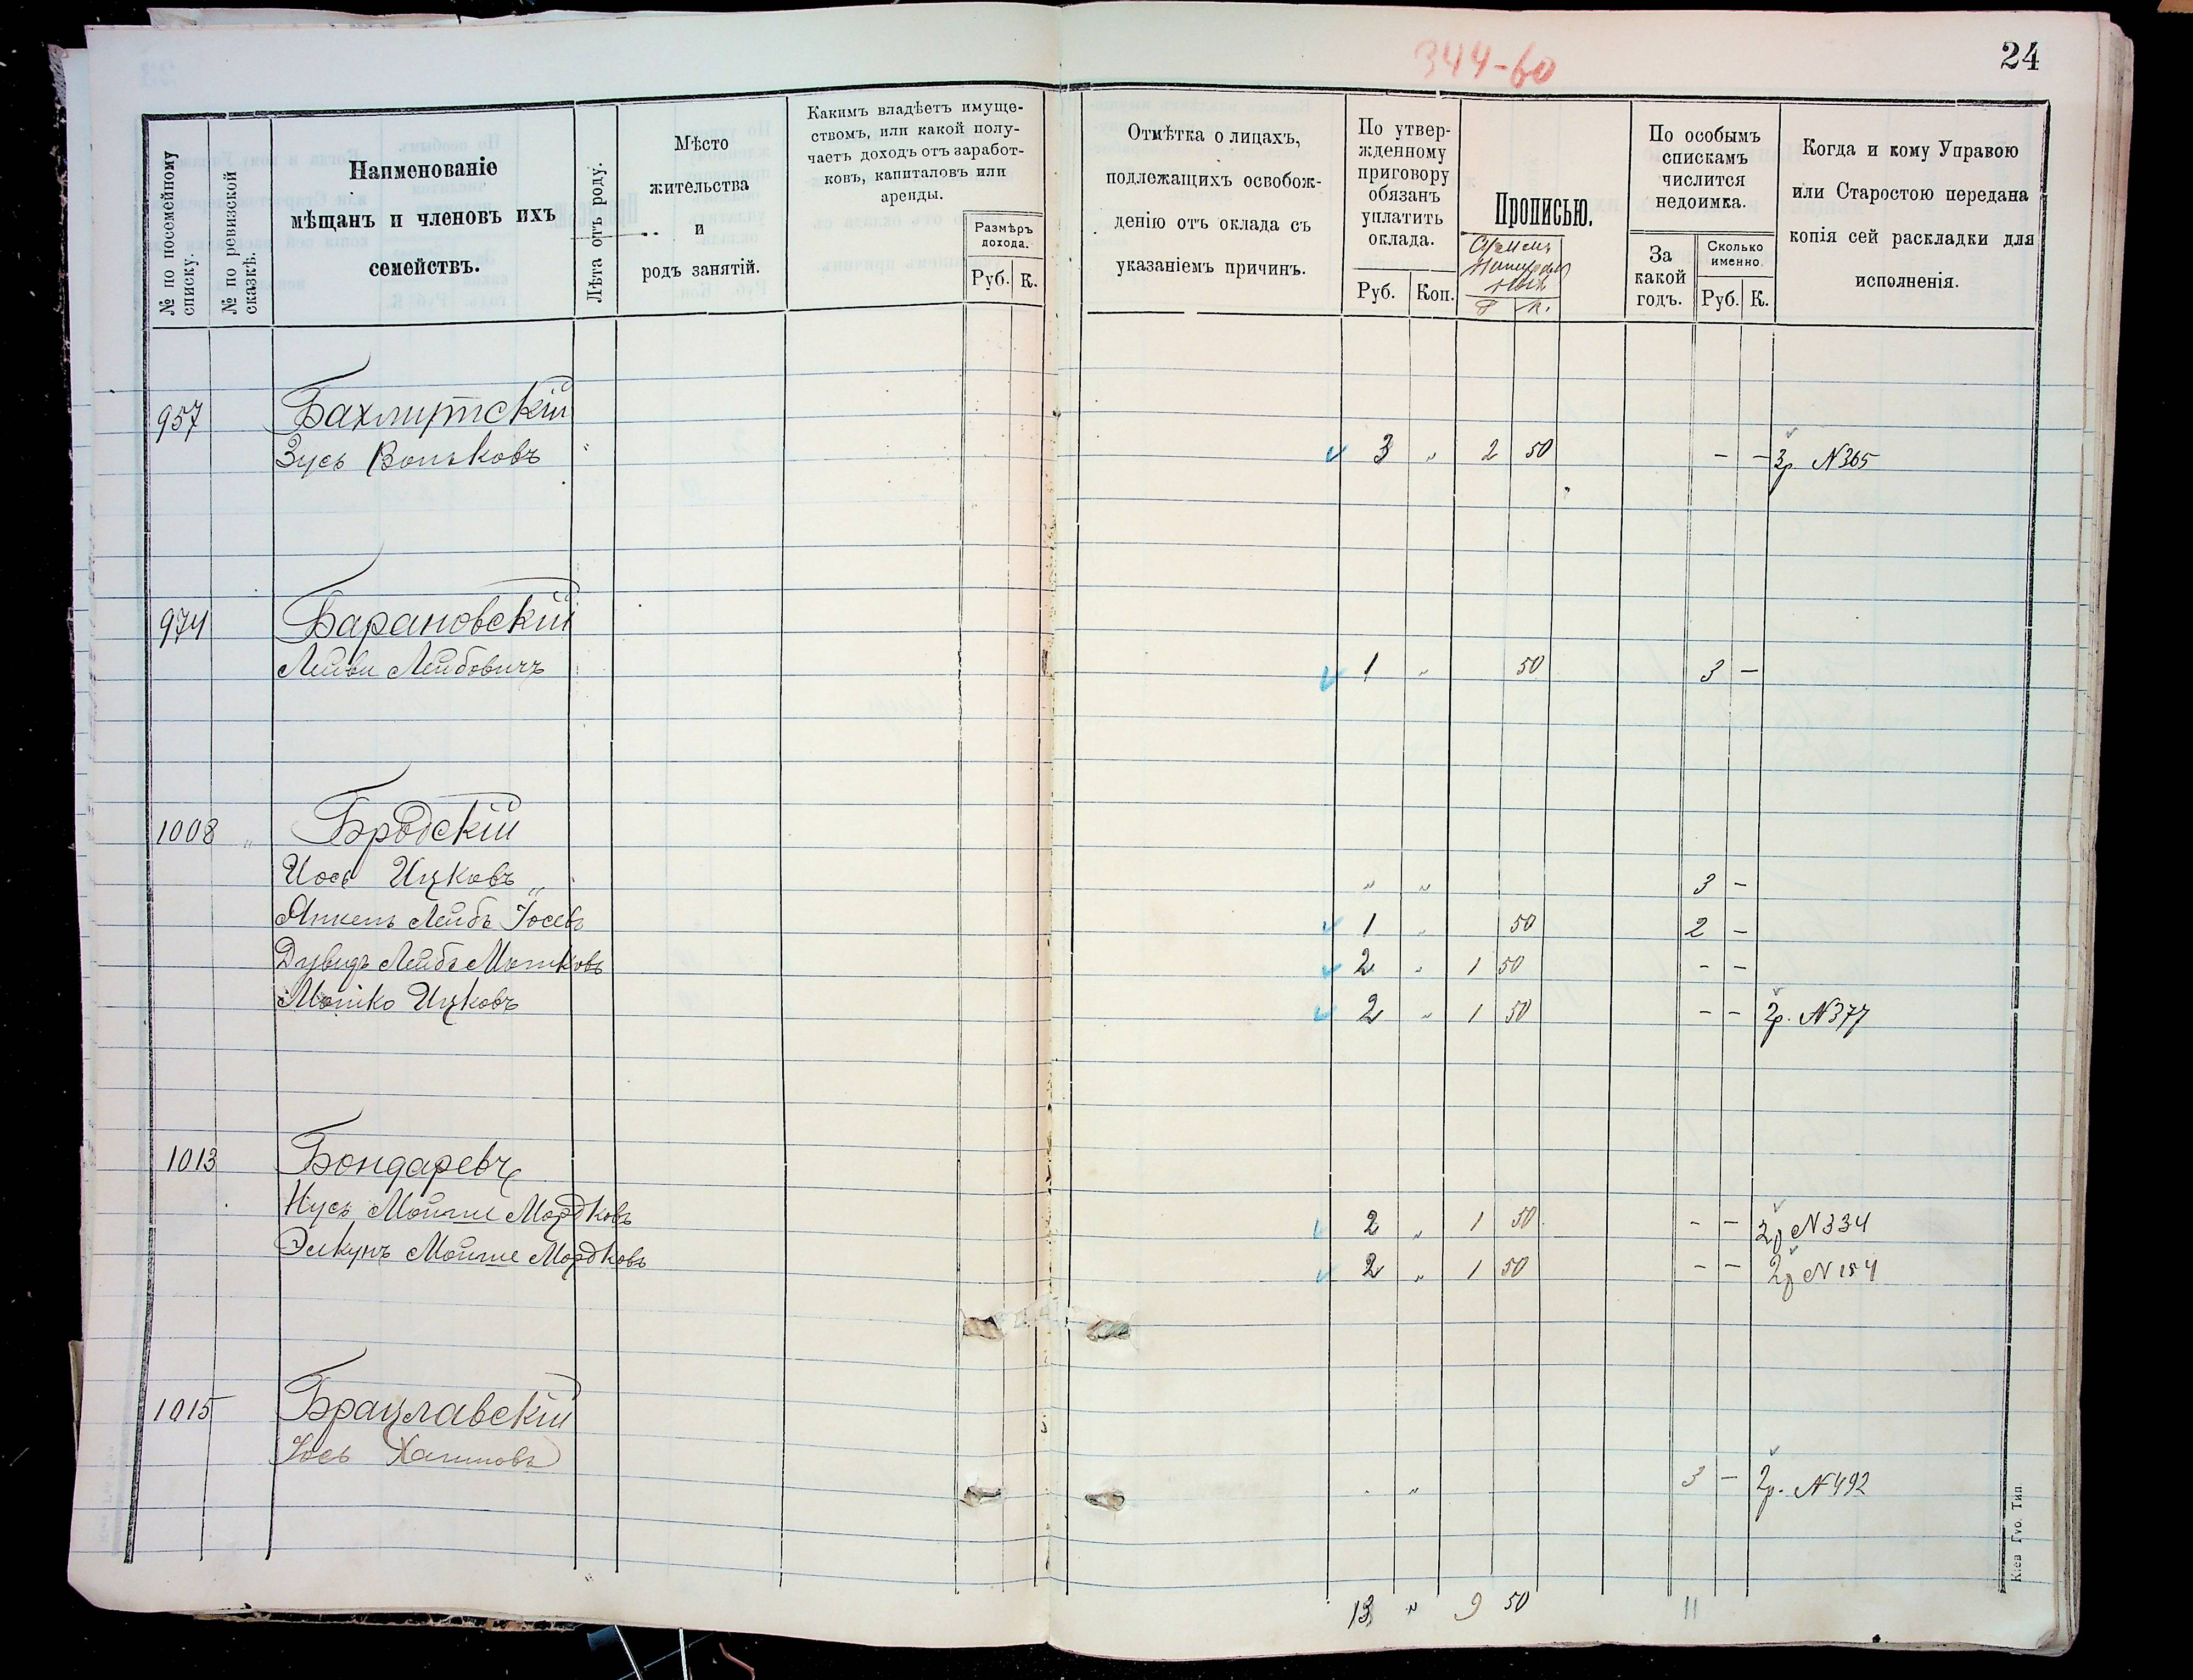 344-60
24
№ по посемейному списку.
№ по ревизской сказкѣ.
Наименованіе
мѣщанъ и членовъ ихъ
семействъ.
Лѣта отъ роду.
Мѣсто
жительства
и
родъ занятій.
Какимъ владѣетъ имуще-
ствомъ, или какой полу-
чаетъ доходъ отъ заработ-
ковъ, капиталовъ или
аренды.
Размѣръ
дохода.
Руб. К.
Отмѣтка о лицахъ,
подлежащихъ освобож-
денію отъ оклада съ
указаніемъ причинъ.
По утвер-
жденному
приговору
обязанъ
уплатить
оклада.
Руб. Коп.
Прописью.
Р К.
По особымъ
спискамъ
числится
недоимка.
За
какой
годъ.
Сколько
именно.
Руб. К.
Когда и кому Управою
или Старостою передана
копія сей раскладки для
исполненія.
957 Бахмутскій
Зусь Вольковъ " 3 " 2 50 - - 3р. N365
974 Барановскій
Лейви Лейбовичъ 1 " 50 3 -
1008 " Бродскій
Иось Ицковъ " " 3 -
Янкель Лейбъ Іосевъ 1 " 50 2 -
Дувидъ Лейбъ Мошковъ 2 " 1 50 - -
Мошко Ицковъ 2 " 1 50 - - 2р. N377
1013 Бондаревъ
Нусь Мойше Мордковъ 2 " 1 50 - - 2р N334
Элкунъ Мойше Мордковъ 2 " 1 50 - - 2р N154
1015 Брацлавскій
Іось Хаимовъ " 3 - 2р. N492
13 " 9 50 11
Кіев Губ. Тип.